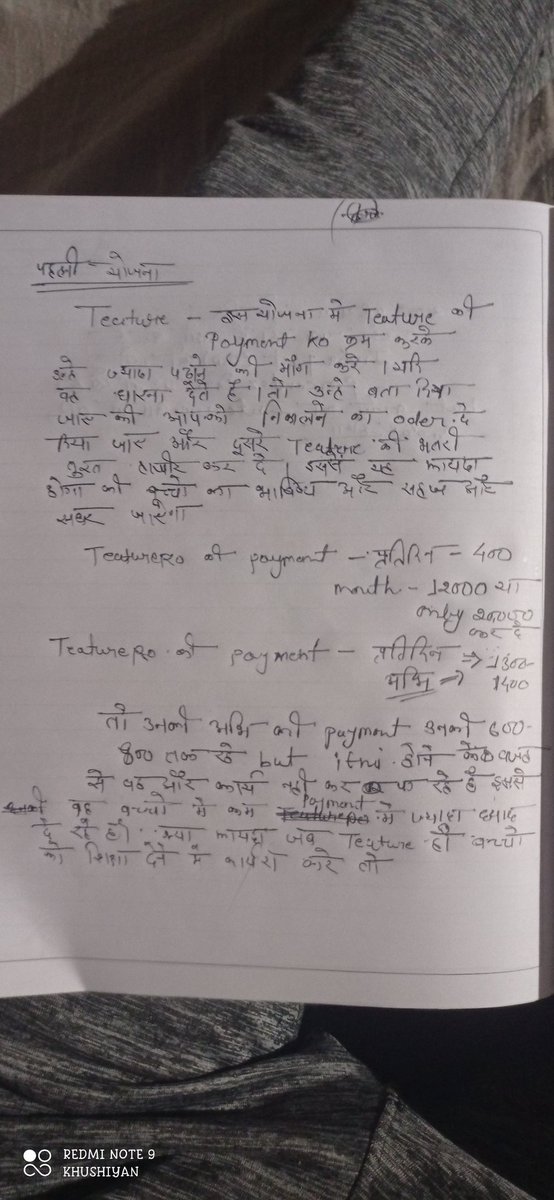 पहली - योजना
Teature - इस योजना मे Teature की
Payment ko कम करके
उन्हे ज्यादा पढ़ाने की माँग करे । यदि
वह धारना देते है । तो उन्हे बता दिया
जाए की आपको निकालने का oder दे
दिया जाए और दूसरे Teature की भतरी
तुरत हाजीर कर दे । इससे यह फायदा
होगा की बच्चो का भाविष्य और सहज और
सुधर जाऐगा
Teaturero की payment - प्रतिदिन - 400
month - 12000 या
only 20000
कर दे
Teaturero की payment - प्रतिदिन ⇒ 1300-
1400
तो उनकी अभि की payment उनकी 600-
800 तक रहे but itni होने के वजह
से वह और कार्य नही कर पा रहे है इससे
वह बच्चो मे कम Payment मे ज्यादा
दे रहे है। क्या फायदा जब Teature ही बच्चो
को शिक्षा देने मे करे तो
REDMI NOTE 9
KHUSHIYAN